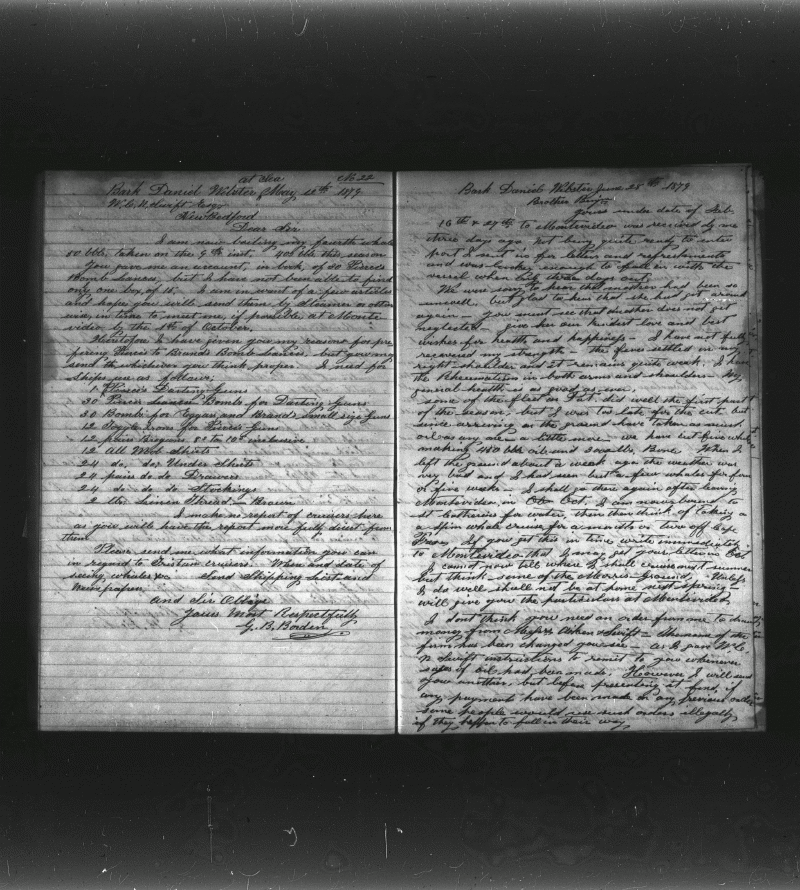 at Sea No 22
Bark Daniel Webster, May 12th 1879
W. C. N. Swift Esqr
New Bedford
Dear Sir
I am now boiling my fourth whale
50 bbls. taken on the 9th inst. 400 bbls this season
You gave me an account, in book, of 30 Pierces
Bomb Lances, but I have not been able to find
only one box, of 15, I am in want of a few articles
and hope you will send them by steamer or other
wise, in time to meet me, if possible, at Monte
video by the 1st of October.
Heretofore I have given you my reasons for pre
fering Pierces to Brands Bomb Lances, but you may
send the whichever you think proper. I need for
Ships use as follows:
1 Pierces Darting Guns
30 Pierces Lances Bombs for Darting Guns
30 Bombs for and Brands small size Guns
12 Toggle Irons for Pierces Guns
12 pairs Brogans 8s to 10s inclusive
12 All Wool Shirts
24 do. do. Under Shirts
24 pairs do do Drawers
24 do. do do Stockings
2 lbs. Linen Thread - Brown
I make no report of cruisers here
as you will have the report more fully direct from
them
Please send me what information you can
in regard to cruisers. When and date of
seeing whales &c. Send Shipping List and
newspapers.
And Sir Oblige
Yours Most Respectfully
G. B. Borden
Bark Daniel Webster June 25th 1879
Brother Benj
Yours under date of Feb.
16th & 27th to Montevideo was received by me
three days ago. not being quite ready to enter
port I sent in for letters and refreshments
and was lucky enough to fall in with the
vessel when but three days out.
We were sorry to hear that mother had been so
unwell, but glad to hear that she had got around
again - you must see that mother does not get
neglected - give her our kindest love and best
wishes for health and happiness - I have not fully
recovered my strength - the fever settled in my
right shoulder and it remains quite weak. I have
the Rheumatism in both arms and shoulders. My
general health is as good as ever.
some of the fleet on Plat. did well the first part
of the season, but I was too late for the cut but
since arriving on the ground have taken as much
oil as any one a little more - we have cut five whales
making 450 bbls oil and Bone. When I
left the ground about a week ago the weather was
very bad and I had seen but a few whales for four
or five weeks. I shall go there again after leaving
Montevideo in Oct. I am now bound to
St Catherines for water, then think of taking a
a Spm whale cruise for a month or two off Cape
Frio. If you get this in time write immediately
to Montevideo that I may get your letter in Oct
I cannot now tell where I shall cruise next summer
but think some of the Morris Ground. Unless
I do well shall not be at home next spring -
will give you the particulars at Montevideo.
I dont think you need an order from me to draw
money from Messrs Aiken & Swift - the name of the
firm has been changed you see - as I gave W. C.
N. Swift instructions to remit to you whenever
sales of oil had been made. However I will send
you another, but before presenting it find, if
any payments have been made on any previous order
some people would use such orders illegally
if they happen to fall in their way